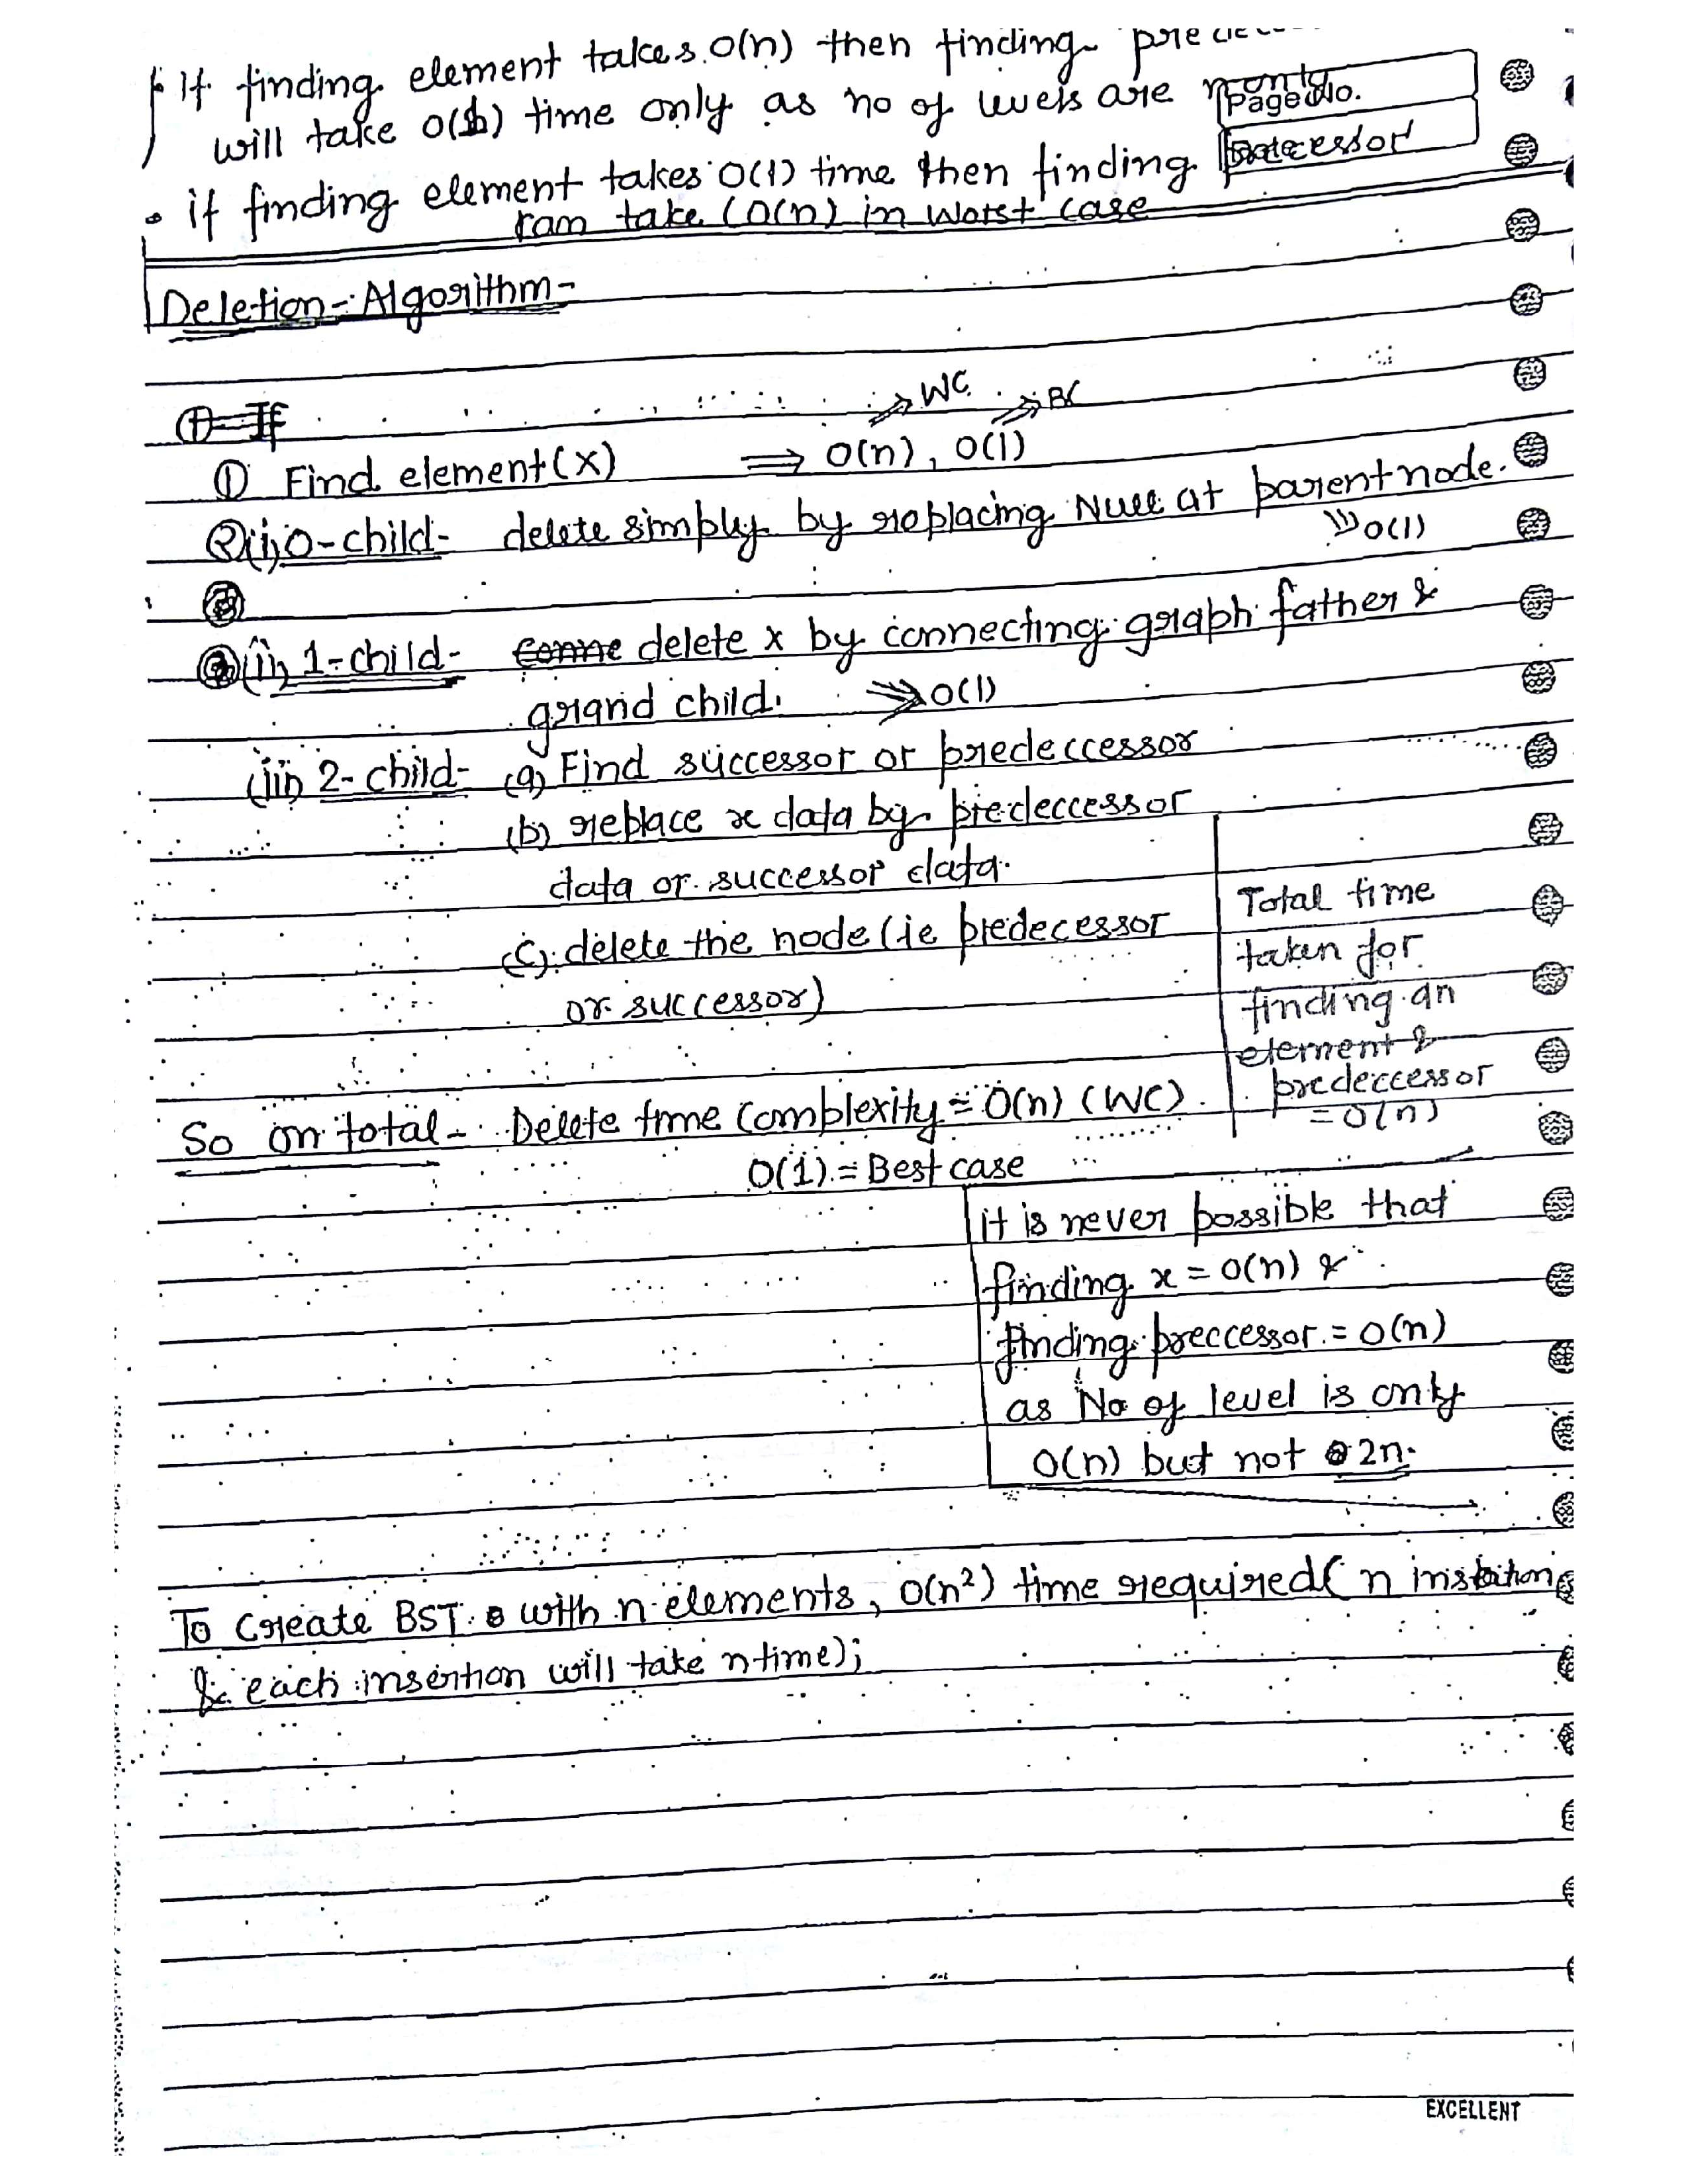 If finding element takes O(n) then finding
will take O(1) time only as no of levels are n only.
Page No.
Date
• if finding element takes O(1) time then finding precessor
can take (O(n) in worst case
Deletion - Algorithm -
① If
WC BC
① Find element(x) ⟹ O(n), O(1)
②(i) 0-child- delete simply by replacing Null at parent node.
⟹ O(1)
(ii) 1-child- Conne delete x by connecting graph father &
grand child. ⟹ O(1)
(iii) 2-child- (a) Find successor or predeccessor
(b) replace x data by predeccessor
data or successor data.
(c) delete the node (ie predecessor
or successor)
Total time
taken for
finding an
element &
predeccessor
= O(n)
So on total - Delete time complexity = O(n) (WC).
O(1) = Best case
it is never possible that
finding x = O(n) &
finding preccessor = O(n)
as No of level is only
O(n) but not 2n.
To Create BST with n elements, O(n²) time required( n
& each insertion will take n time);
EXCELLENT